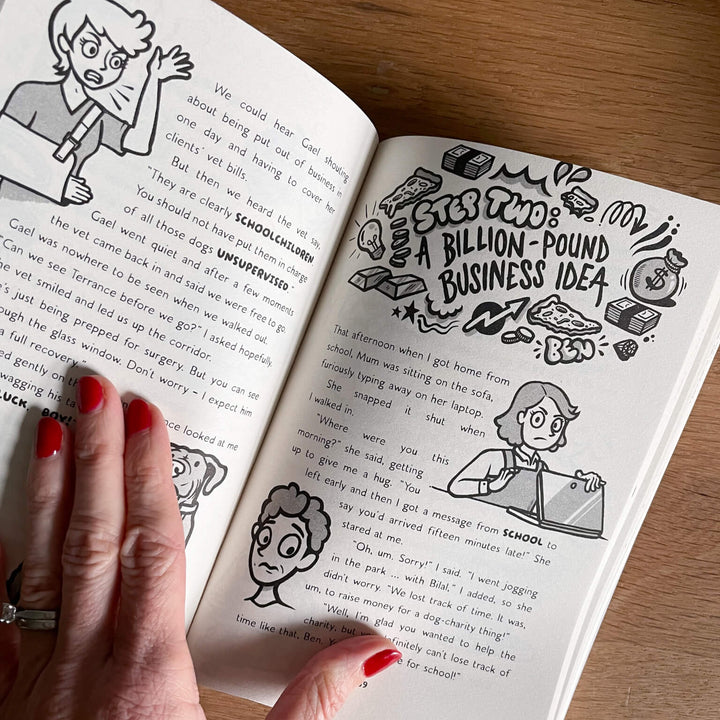 We could hear Gael shouting
about being put out of business in
one day and having to cover her
clients' vet bills.
But then we heard the vet say,
"They are clearly SCHOOLCHILDREN
You should not have put them in charge
of all those dogs UNSUPERVISED."
Gael went quiet and after a few moments
the vet came back in and said we were free to go.
Gael was nowhere to be seen when we walked out.
"Can we see Terrance before we go?" I asked hopefully.
The vet smiled and led us up the corridor.
's just being prepped for surgery. But you can see
ough the glass window. Don't worry – I expect him
a full recovery
ed gently on th
nce looked at me
wagging his ta
LUCK, BOY!
STEP TWO:
A BILLION-POUND
BUSINESS IDEA
BEN
That afternoon when I got home from
school, Mum was sitting on the sofa,
furiously typing away on her laptop.
She snapped it shut when
I walked in.
"Where were you this
morning?" she said, getting
up to give me a hug. "You
left early and then I got a message from SCHOOL to
say you'd arrived fifteen minutes late!" She
stared at me.
"Oh, um. Sorry!" I said. "I went jogging
in the park ... with Bilal," I added, so she
didn't worry. "We lost track of time. It was,
um, to raise money for a dog-charity thing!"
"Well, I'm glad you wanted to help the
charity, but you definitely can't lose track of
time like that, Ben. Yo e for school!"
9